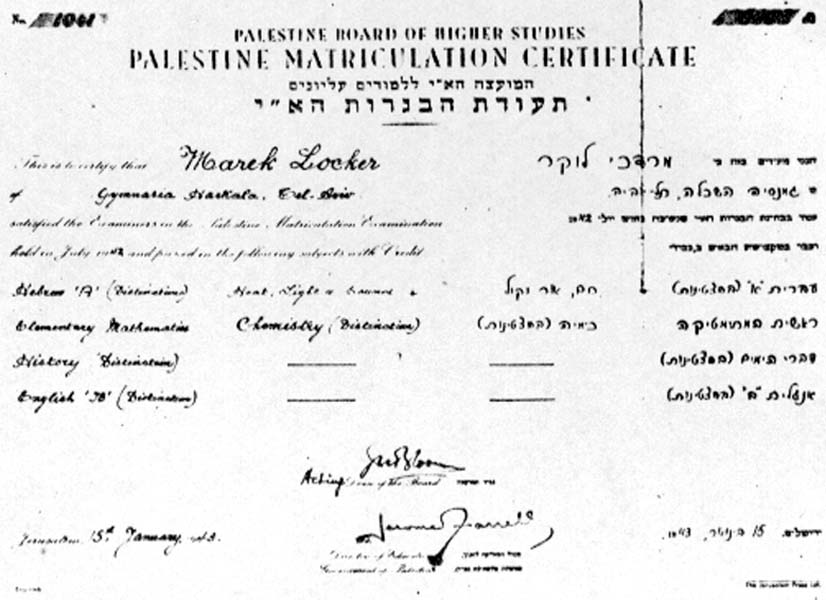 No. 1061
PALESTINE BOARD OF HIGHER STUDIES
PALESTINE MATRICULATION CERTIFICATE
המועצה הא"י ללמודים עליונים
תעודת הבגרות הא"י
This is to certify that Marek Locker מרדכי לוקר
of Gymnasia Haskala, Tel-Aviv גמנסיה השכלה, תל-אביב
satisfied the Examiners in the Palestine Matriculation Examination
held in July 1942 and passed in the following subjects with Credit
Hebrew 'A' (Distinction) Heat, Light & Sound חם, אור וקול עברית "א" (בהצטינות)
Elementary Mathematics Chemistry (Distinction) כימיה (בהצטינות) ראשית המתמטיקה
History (Distinction) דברי הימים (בהצטינות)
English 'B' (Distinction) אנגלית "ב" (בהצטינות)
Acting Dean of the Board
Jerome Farrell
Jerusalem 15th January 1943 ירושלים, 15 בינואר, 1943
Director of Education
Government of Palestine
The Jerusalem Press Ltd.